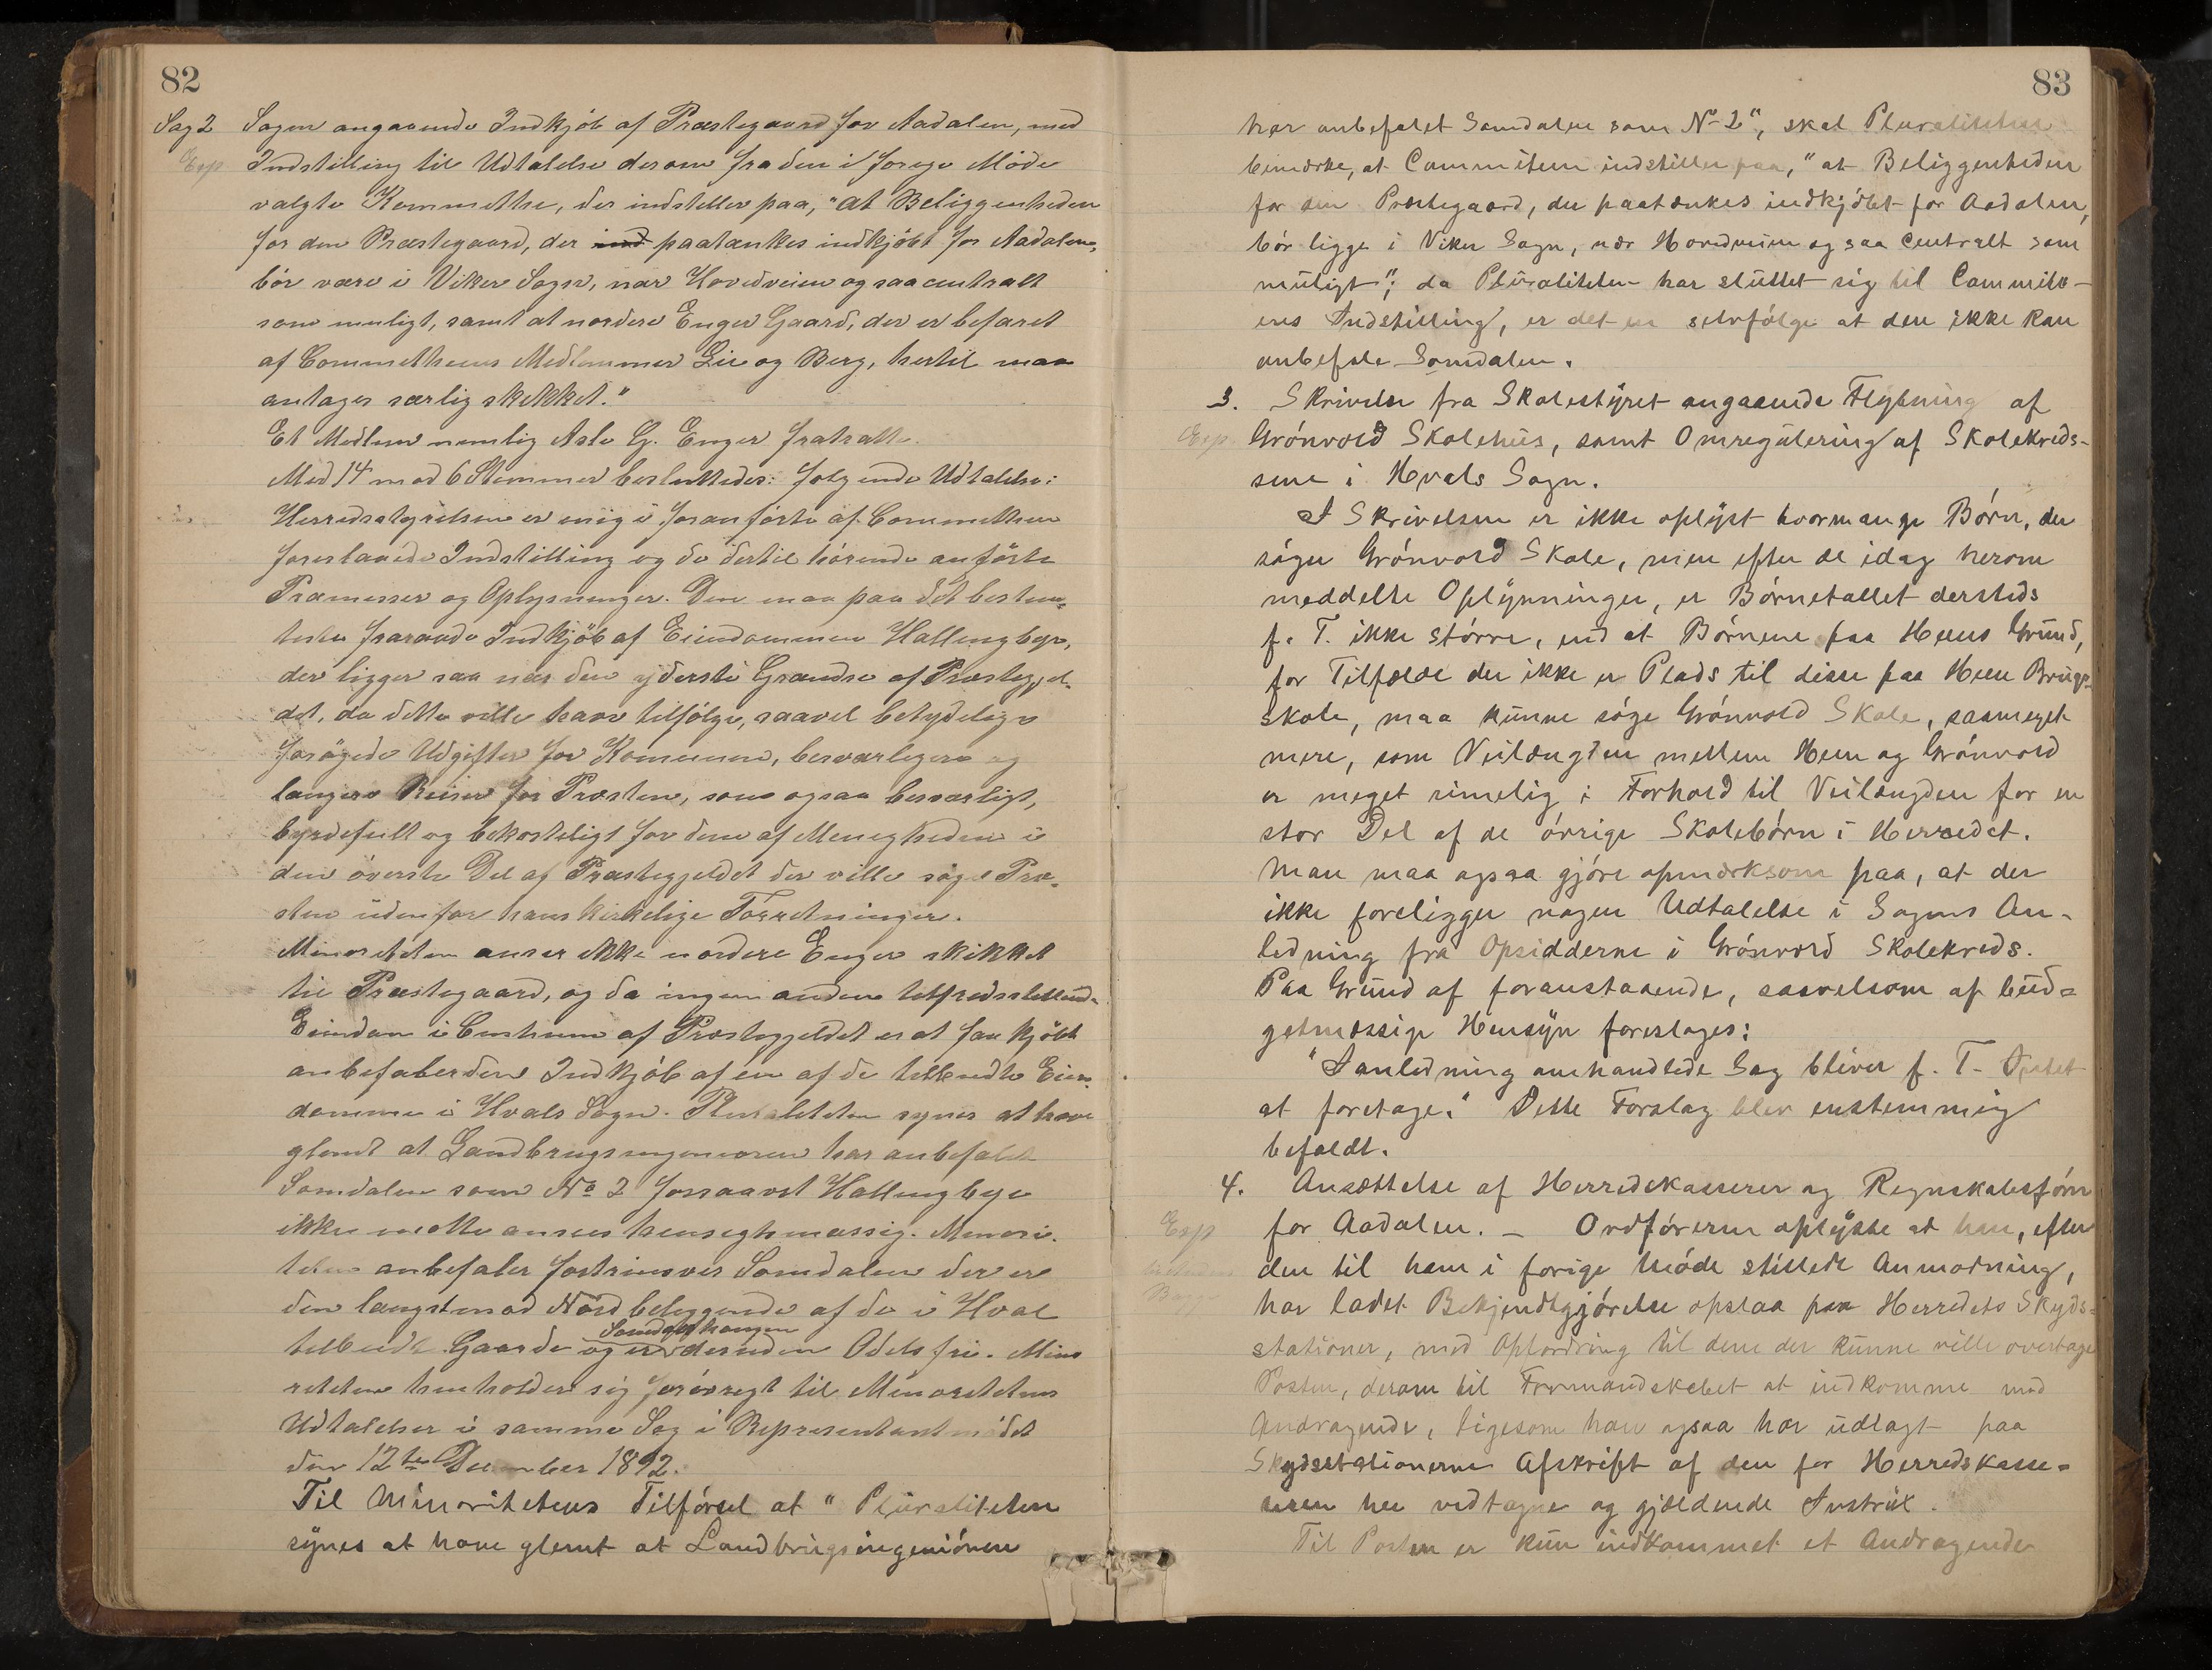 82
Sag 2 Sagen angaaende Indkjøb af Præstegaard for Aadalen, med
Exp Indstilling til Udtalelse derom fra den i forrige Möde
valgte Kommitthe, der indstiller paa, "at Beliggenheden
for den Præstegaard, der ind paatænkes indkjöbt for Aadalen,
bör være i Viker Sogn, nær Hovedveien og saa centralt
som muligt, samt at nordere Enger Gaard, der er befaret
af Committheens Medlemmer Lie og Berg, hertil maa
antages særlig skikket."
Et Medlem nemlig Asle G. Enger fratraatte.
Med 14 mod 6 Stemmer besluttedes: følgende Udtalelse:
Herredsstyrelsen er enig i foranförte af Committheen
foreslaaede Indstilling og de dertil hörende anförte
Præmisser og Oplysninger. Den maa paa det bestem-
teste fraraade Indkjöb af Eiendommen Hallingbye,
der ligger saa nær den yderste Grændse af Præstegjel-
det, da dette ville have tilfölge, saavel betydelige
forögede Udgifter for Komunen, besværligere og
længere Reiser for Præsten, som ogsaa besværligt,
byrdefuldt og bekosteligt for dem af Menigheden i
den överste Del af Præstegjeldet der ville söge Præ-
sten udenfor hans kirkelige Forretninger.
Minoriteten anser ikke nordere Enger skikket
til Præstegaard, og da ingen anden tilfredsstillende
Eiendom i Centrum af Præstegjeldet er at faa kjöbt
anbefaler den Indkjöb af en af de tilbudte Eien-
domme i Hvals Sogn. Pluraliteten synes at have
glemt at Landbrugsingenieuren har anbefalet
Somdalen som No 2 forsaavidt Hallingbye
ikke maatte ansees hensigtsmæssig. Minori-
teten anbefaler fortrinsvis Somdalen der er
den længst mod Nord beliggende af de i Hval
Somdalshaugen
tilbudte Gaarde og er desuden Odels fri. Mino
riteten henholder sig forövrigt til Minoritetens
Udtalelser i samme Sag i Representantmödet
den 12te December 1892.
Til Minoritetens Tilförsel at "Pluraliteten
synes at have glemt at Landbrugsingeniören
83
har anbefalet Somdalen som No 2", skal Pluraliteten
bemærke, at Commiteen indstiller paa, "at Beliggenheden
for den Præstegaard, der paatænkes indkjöbt for Aadalen,
bör ligge i Viker Sogn, nær Hovedveien og saa centralt som
muligt"; da Pluraliteten har sluttet sig til Commite-
ens Indstilling, er det en selvfölge at den ikke kan
anbefale Somdalen.
3. Skrivelse fra Skolestyret angaaende Flytning af
Exp. Grönvold Skolehus, samt Omregulering af Skolekreds-
sene i Hvals Sogn.
I Skrivelsen er ikke oplyst hvormange Börn, der
söger Grönvold Skole, men efter de idag herom
meddelte Oplysninger, er Börnetallet dersteds
f. T. ikke större, end at Börnene paa Heens Grund,
for Tilfælde der ikke er Plads til disse paa Heen Brugs-
skole, maa kunne söge Grönvold Skole, saameget
mere, som Veilængden mellem Heen og Grönvold
er meget rimelig i Forhold til Veilængden for en
stor Del af de övrige Skolebörn i Herredet.
Man maa ogsaa gjöre opmærksom paa, at der
ikke foreligger nogen Udtalelse i Sagens An-
ledning fra Opsidderne i Grönvold Skolekreds.
Paa Grund af foranstaaende, saavelsom af bud-
getmæssige Hensyn foreslages:
"I anledning omhandlede Sag bliver f. T. Intet
at foretage." Dette Forslag blev enstemmig
befaldt.
4. Ansættelse af Herredskasserer og Regnskabsförer
Exp for Aadalen. – Ordföreren oplyste at han, efter
den til ham i forige Möde stillede Anmodning,
har ladet Bekjendtgjörelse opslaa paa Herredets Skyds-
stationer, med Opfordring til dem der kunne ville overtage
Posten, derom til Formandskabet at indkomme med
Andragende, ligesom han ogsaa har udlagt paa
Skydsstationerne Afskrift af den for Herredskasse-
reren her vedtagne og gjældende Instrux.
Til Posten er kun indkommet et Andragende